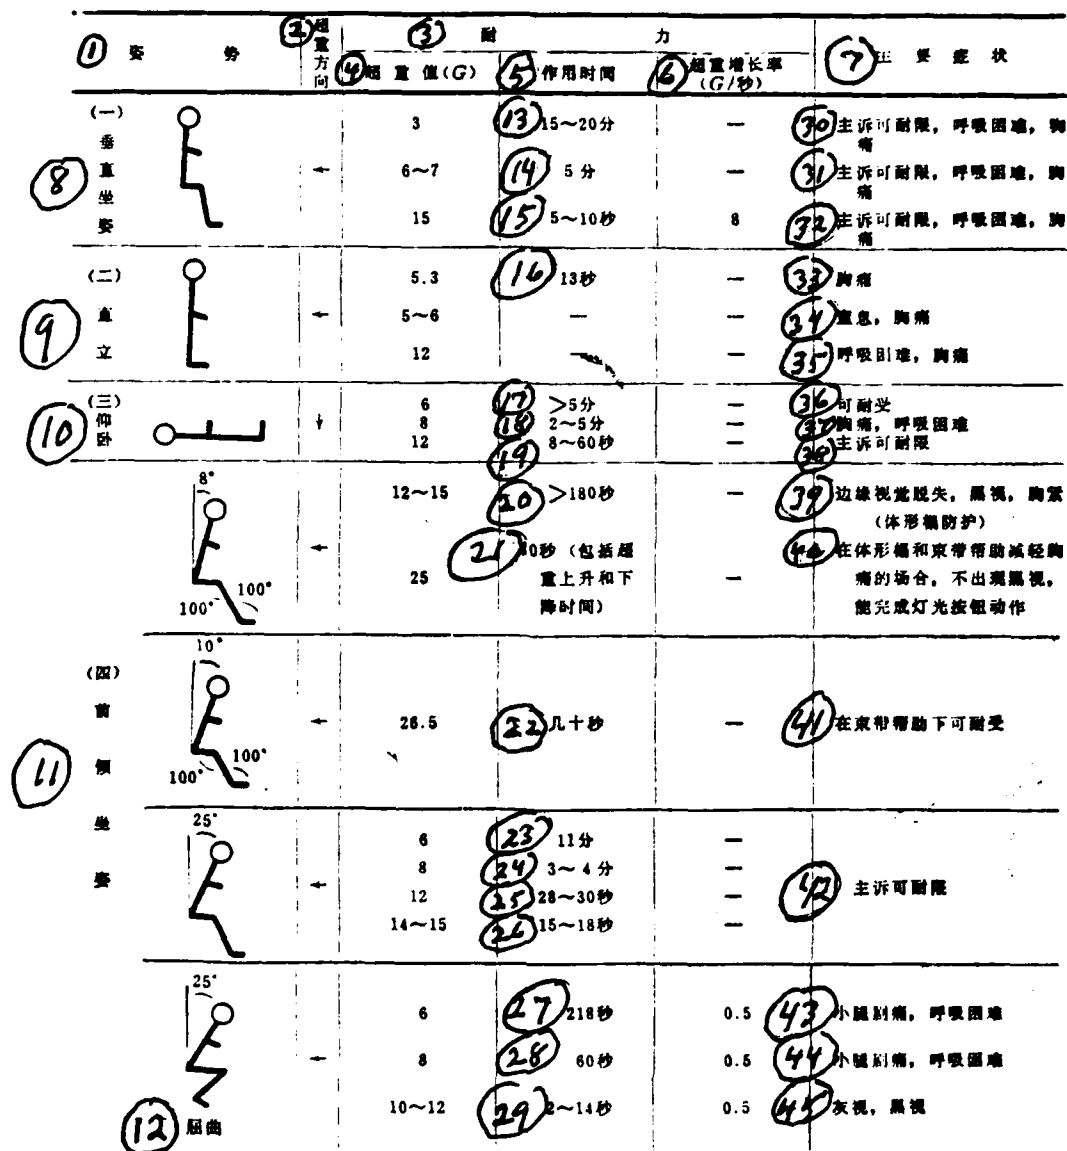 ① 姿 势 ② 超重方向 ③ 耐 力 ⑦ 主 要 症 状
④ 超 重 值(G) ⑤ 作用时间 ⑥ 超重增长率(G/秒)
⑧ (一)垂直坐姿
← 
3 ⑬ 15~20分 — ㉚ 主诉可耐限,呼吸困难,胸痛
6~7 ⑭ 5分 — ㉛ 主诉可耐限,呼吸困难,胸痛
15 ⑮ 5~10秒 8 ㉜ 主诉可耐限,呼吸困难,胸痛
⑨ (二)直立
←
5.3 ⑯ 13秒 — ㉝ 胸痛
5~6 — — ㉞ 窒息,胸痛
12 — — ㉟ 呼吸困难,胸痛
⑩ (三)仰卧
↓
6 ⑰ >5分 — ㊱ 可耐受
8 ⑱ 2~5分 — ㊲ 胸痛,呼吸困难
12 ⑲ 8~60秒 — ㊳ 主诉可耐限
⑪ (四)前倾坐姿
8° 100° 100°
←
12~15 ⑳ >180秒 — ㊴ 边缘视觉脱失,黑视,胸紧
(体形褟防护)
25 ㉑ 40秒(包括超 — ㊵ 在体形褟和束带帮助减轻胸
重上升和下 痛的场合,不出现黑视,
降时间) 能完成灯光按钮动作
10° 100° 100°
←
26.5 ㉒ 几十秒 — ㊶ 在束带帮助下可耐受
25°
←
6 ㉓ 11分 —
8 ㉔ 3~4分 —
㊷ 主诉可耐限
12 ㉕ 28~30秒 —
14~15 ㉖ 15~18秒 —
25°
←
6 ㉗ 218秒 0.5 ㊸ 小腿剧痛,呼吸困难
8 ㉘ 60秒 0.5 ㊹ 小腿剧痛,呼吸困难
10~12 ㉙ 2~14秒 0.5 ㊺ 灰视,黑视
⑫ 屈曲